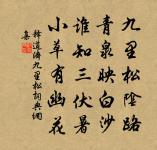 九里松陰路
青泉映白沙
誰知三伏暑
小草有幽花
韓道濟九里松詞典網
集